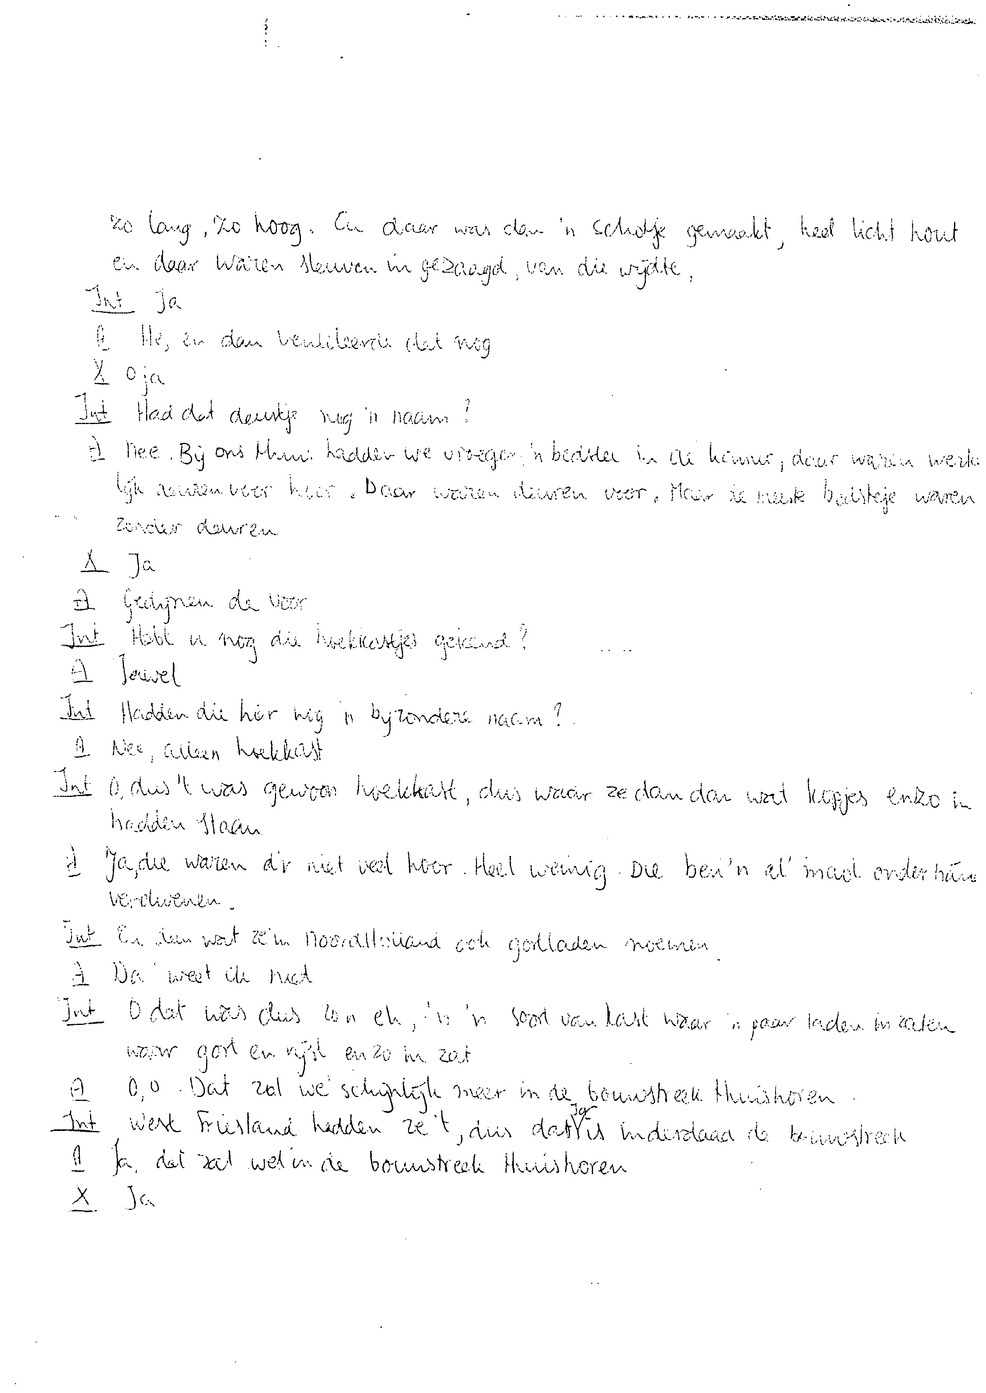 zo lang, zo hoog. En daar was dan 'n schotje gemaakt, heel licht hout
en daar waren sleuven in gezaagd, van die wijdte,
Int Ja
A He, en dan ventileerde dat nog
X O ja
Int Had dat deurtje nog 'n naam?
A Nee. Bij ons thuis hadden we vroeger 'n bedstee in de kamer, daar waren werke
lijk deuren voor hoor. Daar waren deuren voor. Maar de meeste bedsteje waren
zonder deuren
X Ja
A Gedijnen de voor
Int Hebt u nog die hoekkastjes gekend?
A Jawel
Int Hadden die hier nog 'n bijzondere naam?
A Nee, alleen hoekkast
Int O, dus 't was gewoon hoekkast, dus waar ze dan dan wat kopjes enzo in
hadden staan
A Ja, die waren d'r niet veel hoor. Heel weinig. Die ben'n al' maal onderhand
verdwenen.
Int En dan wat ze in Noord Holland ook gortladen noemen.
A Da' weet ik niet
Int O dat was dus zo'n eh, 'n 'n soort van kast waar 'n paar laden in zaten
waar gort en rijst enzo in zat
A O, o. Dat zal we'schijnlijk meer in de bouwstreek thuishoren.
Int West Friesland hadden ze 't, dus dat ja is inderdaad de bouwstreek
A Ja, dat zal wel in de bouwstreek thuishoren
X Ja